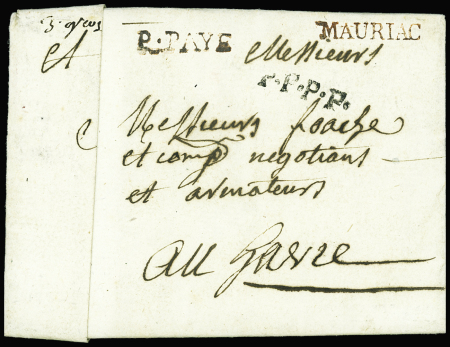 3. 9bre
et
P.PAYE
MAURIAC
Messieurs
P.P.P.P.
Messieurs foache
et comp negotians
et armateurs
au havre